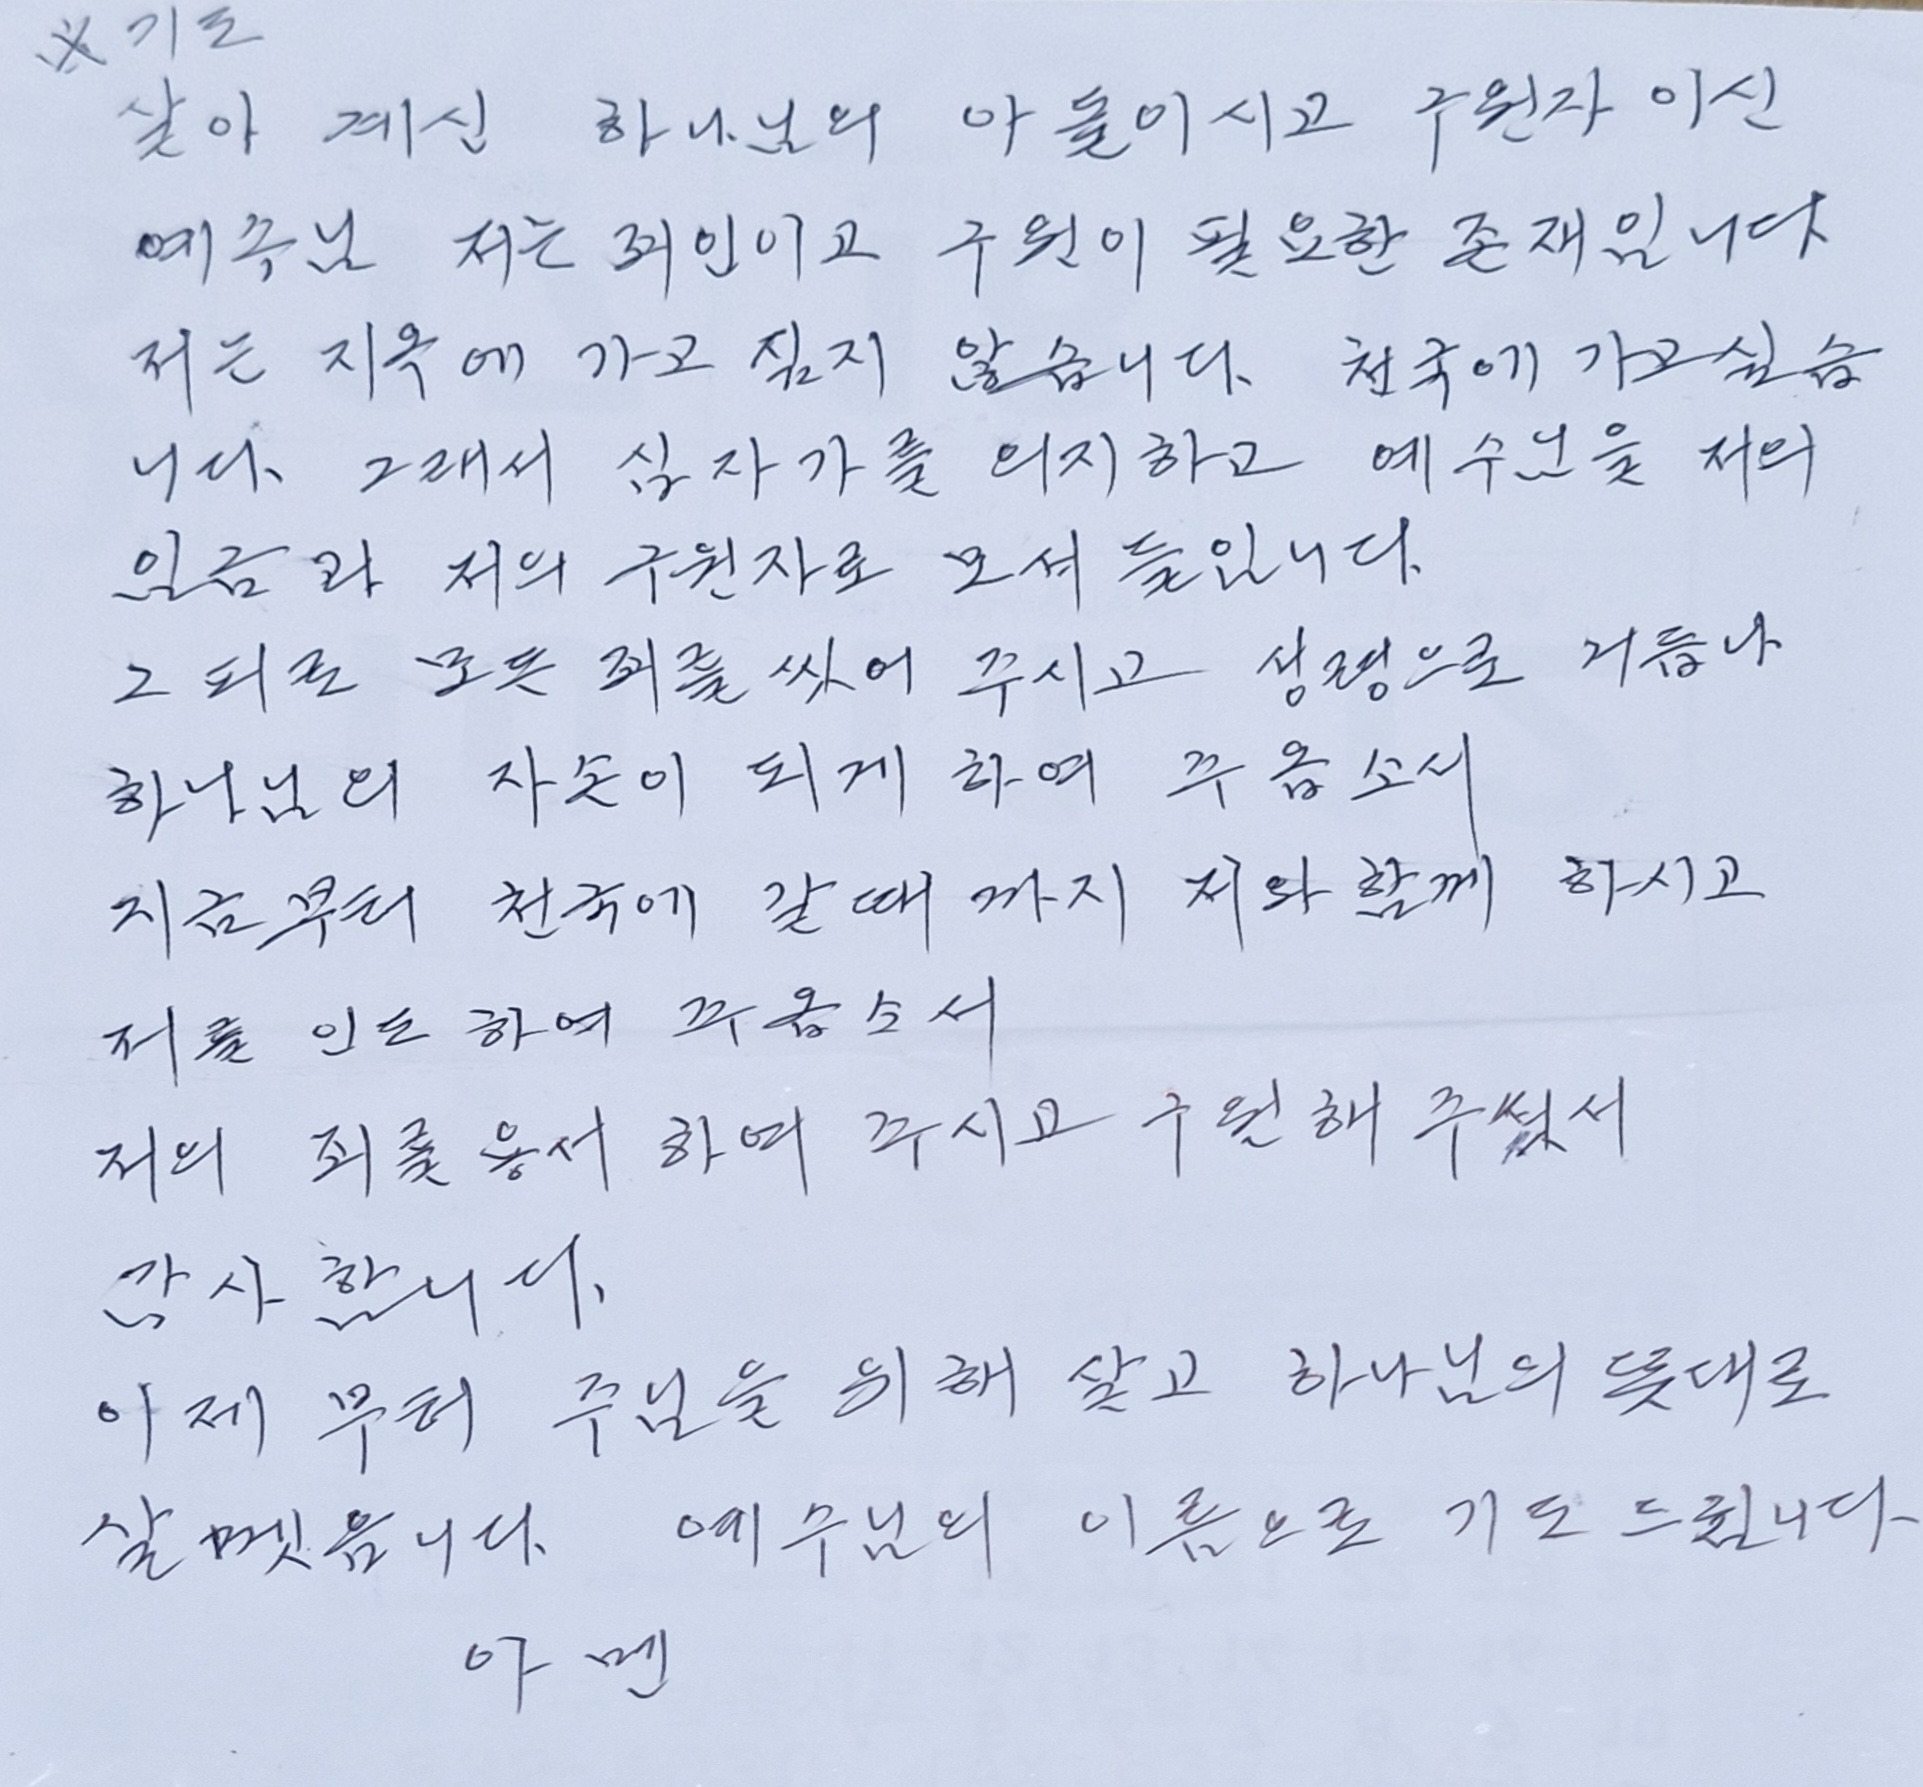 ※ 기도
살아 계신 하나님의 아들이시고 구원자 이신
예수님 저는 죄인이고 구원이 필요한 존재입니다
저는 지옥에 가고 싶지 않습니다. 천국에 가고싶습
니다. 그래서 십자가를 의지하고 예수님을 저의
임금과 저의 구원자로 모셔 들입니다.
그 피로 모든 죄를 씻어 주시고 성령으로 거듭나
하나님의 자손이 되게 하여 주옵소서
지금부터 천국에 갈때 까지 저와 함께 하시고
저를 인도 하여 주옵소서
저의 죄를 용서 하여 주시고 구원해 주셨서
감사 합니다.
이제 부터 주님을 위해 살고 하나님의 뜻대로
살겠습니다. 예수님의 이름으로 기도 드립니다.
아멘